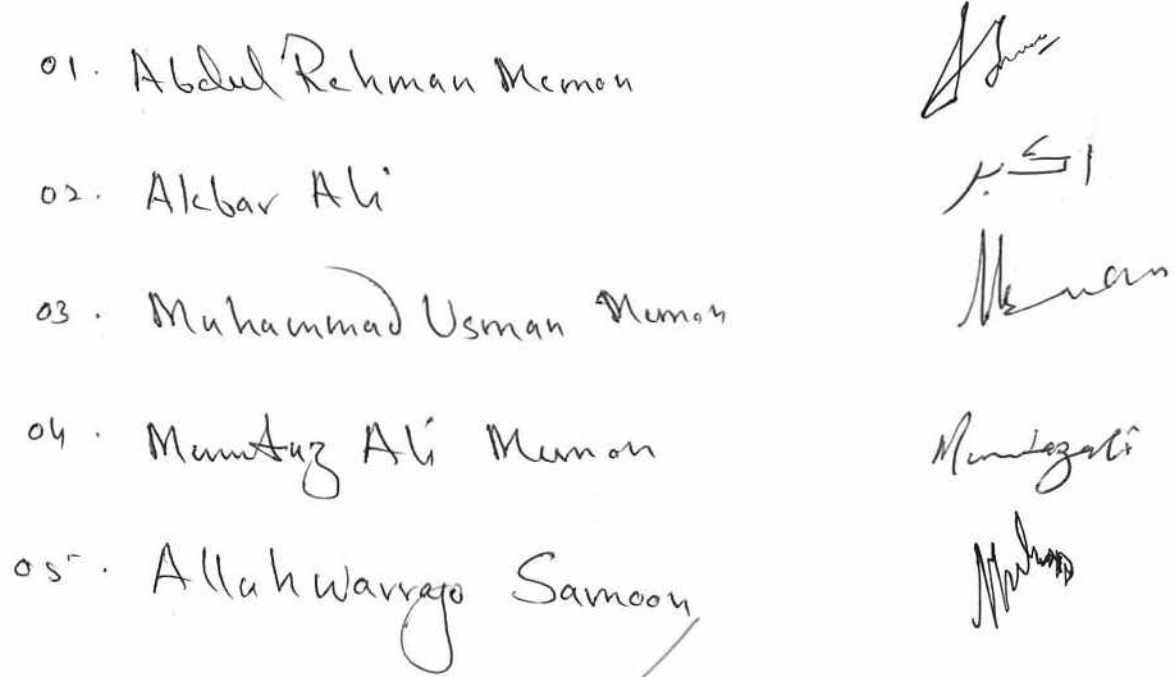 01. Abdul Rehman Memon
02. Akbar Ali اکبر
03. Muhammad Usman Memon Memon
04. Mumtaz Ali Memon Mumtazali
05. Allahwarrayo Samoon